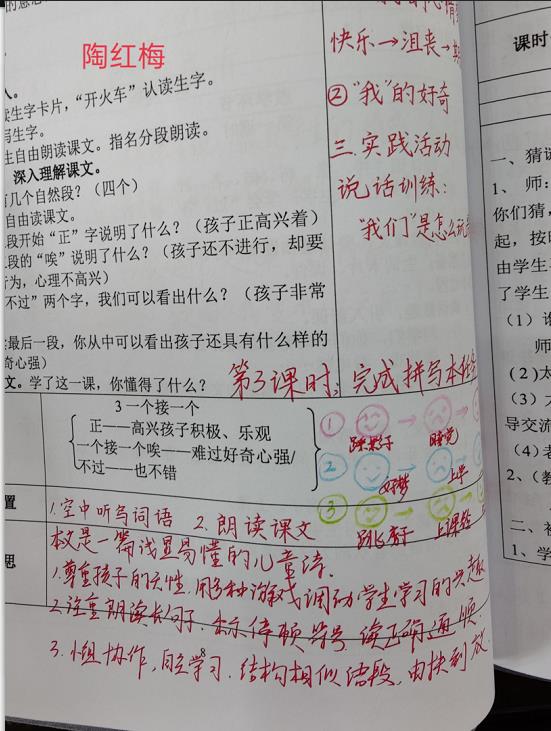 陶红梅
生字卡片,“开火车”认读生字。
写生字。
生自由朗读课文。指名分段朗读。
深入理解课文。
有几个自然段?(四个)
自由读课文。
段开始“正”字说明了什么?(孩子正高兴着)
段的“唉”说明了什么?(孩子还不进行,却要
行为,心理不高兴)
不过”两个字,我们可以看出什么?(孩子非常
最后一段,你从中可以看出孩子还具有什么样的
奇心强)
文。学了这一课,你懂得了什么?
快乐→沮丧→
②“我”的好奇
三.实践活动
说话训练:
“我们”是怎么玩
第3课时:完成拼写本
3 一个接一个
正——高兴孩子积极、乐观
一个接一个唉——难过好奇心强/
不过——也不错
① → →
踩影子 睡觉
② → →
做梦 上学
③ → →
跳房子 上课铃
置
1.空中听写词语 2.朗读课文
思
本文是一篇浅显易懂的儿童诗.
1.尊重孩子的天性.用多种游戏调动学生学习的兴趣
2.注重朗读长句子.标停顿符号.读正确通顺.
3.小组协作,自主学习.结构相似语段.由扶到放.
8
课时
一、猜谜
1、师:
你们猜,
起,按
由学生
了学生
(1)
师
(2)太
(3)
导交流
(4)老
2、(教
二、
1、学